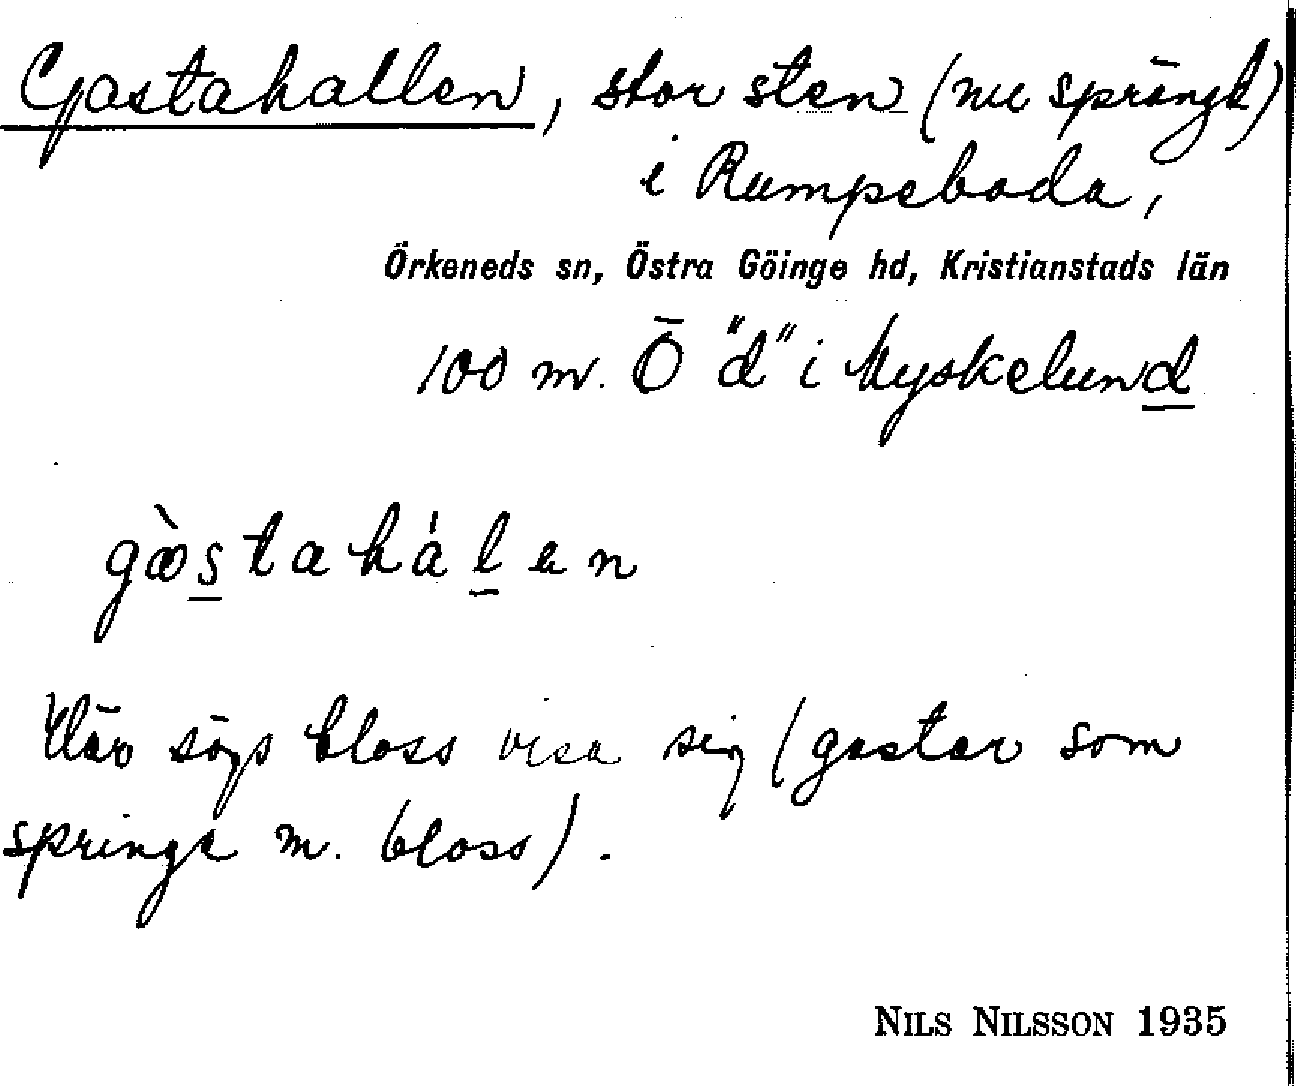 Gastahallen, stor sten (nu sprängd)
i Rumpeboda,
Örkeneds sn, Östra Göinge hd, Kristianstads län
100 m. Ö "d" i Myskelund
gàstahálen
Här sågs bloss visa sig (gastar som
springa m. bloss).
NILS NILSSON 1935